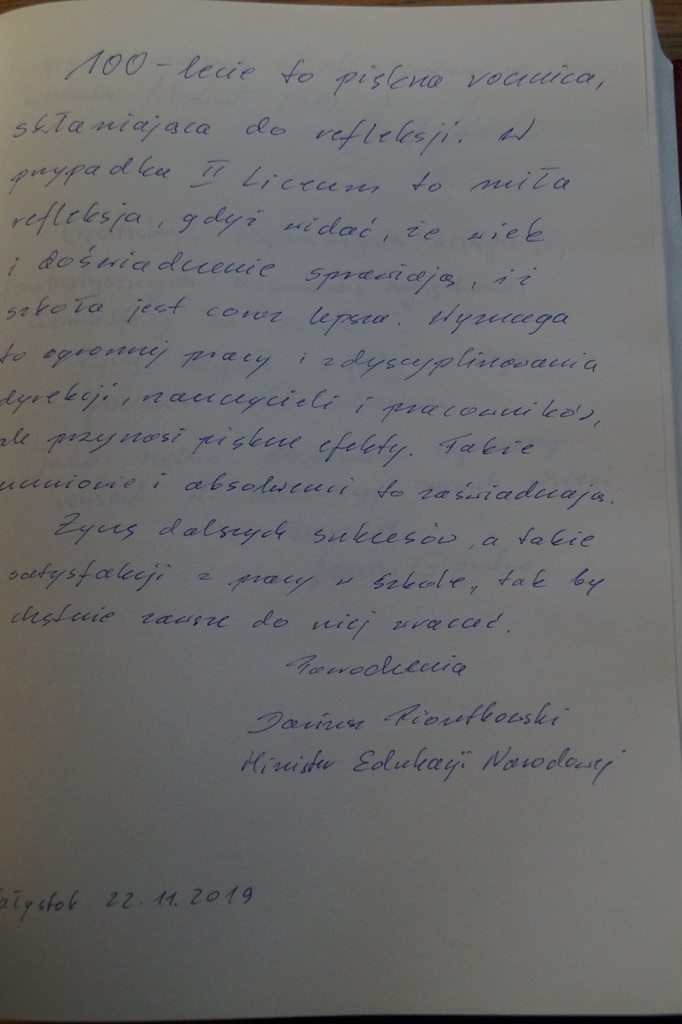 100-lecie to piękna rocznica,
skłaniająca do refleksji. W
przypadku II Liceum to miła
refleksja, gdyż widać, że wiek
i doświadczenie sprawiają, iż
szkoła jest coraz lepsza. Wymaga
to ogromnej pracy i zdyscyplinowania
dyrekcji, nauczycieli i pracowników,
ale przynosi piękne efekty. Także
uczniowie i absolwenci to zaświadczają.
Życzę dalszych sukcesów, a także
satysfakcji z pracy w szkole, tak by
chętnie zawsze do niej wracać.
Powodzenia
Dariusz Piontkowski
Minister Edukacji Narodowej
ałystok 22.11.2019